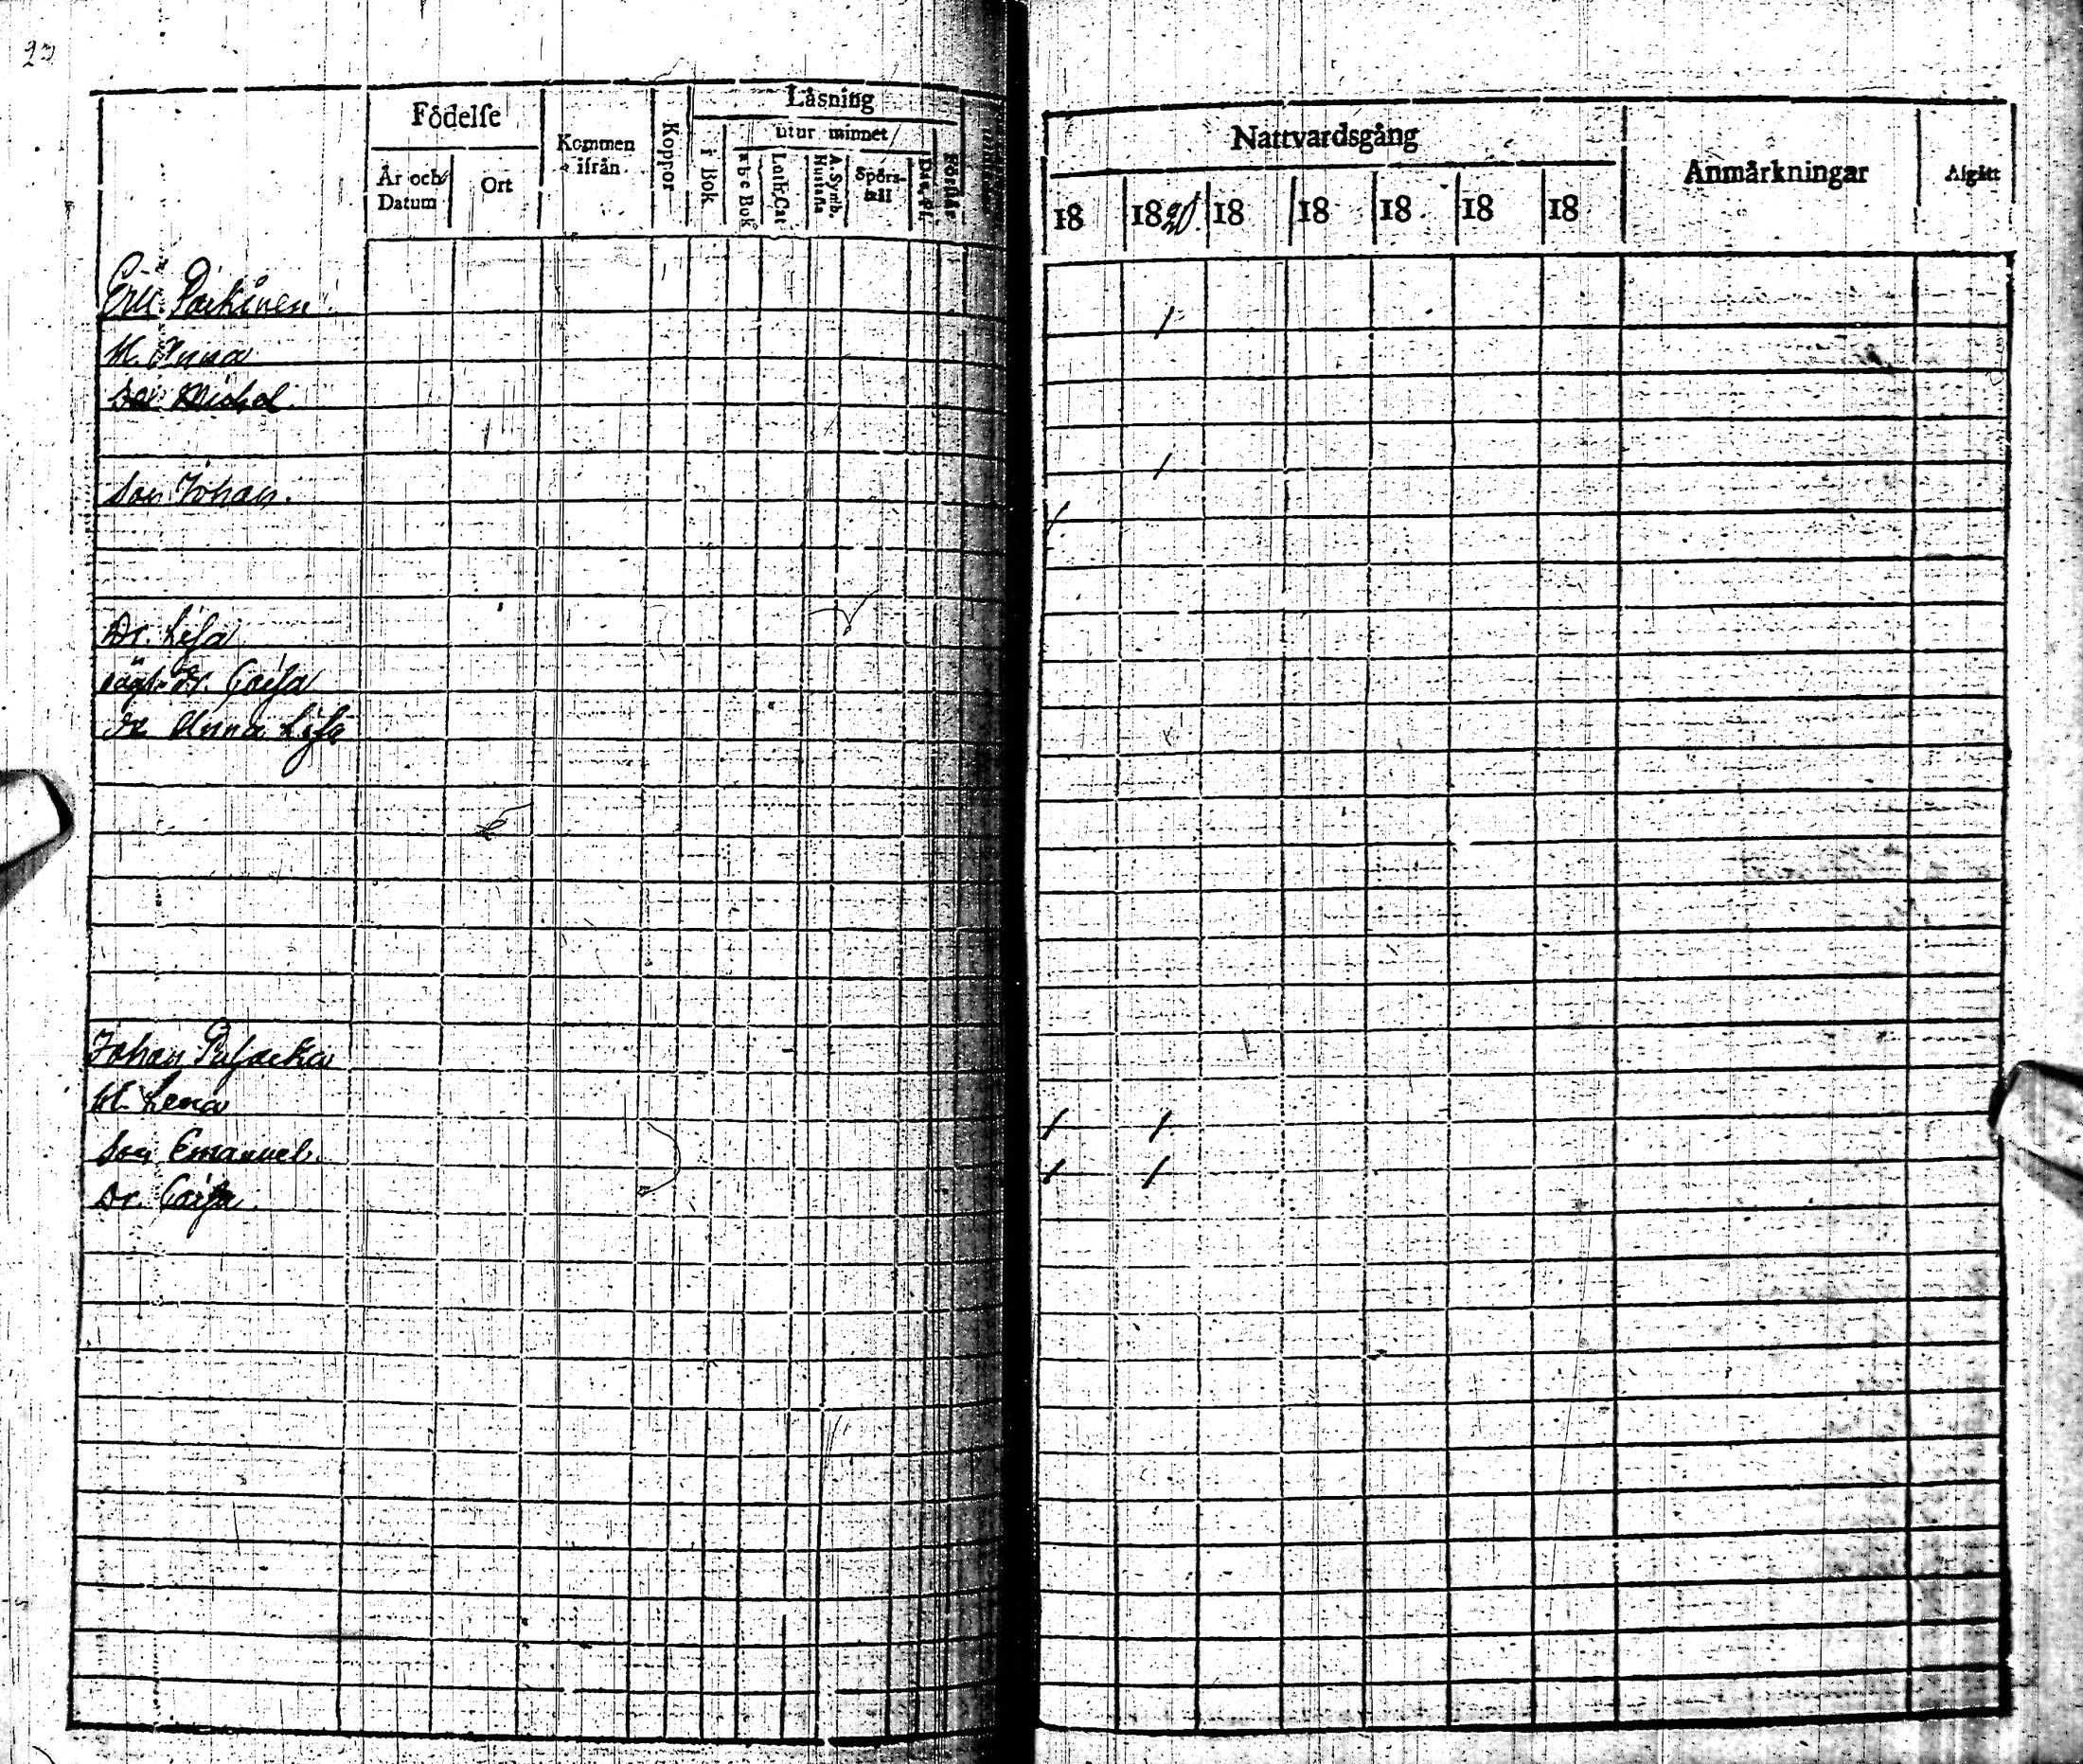 Födelse
Låsning
Kommen ifrån
Koppor
utur minnet
År och Datum
Ort
i Bok
a b c Bok
Luth. Cat
A. Symb. Hustafla
Spörs-mål
Förstår
Nattvardsgång
Anmärkningar
Afgått
18 1820. 18 18 18 18 18
Eric Parkinen
H. Anna
Son Michel
Son Johan.
Dr. Lisa
Dr. Caisa
Dr Anna Lisa
Johan
H. Lena
Son Emanuel.
Dr. Caisa.